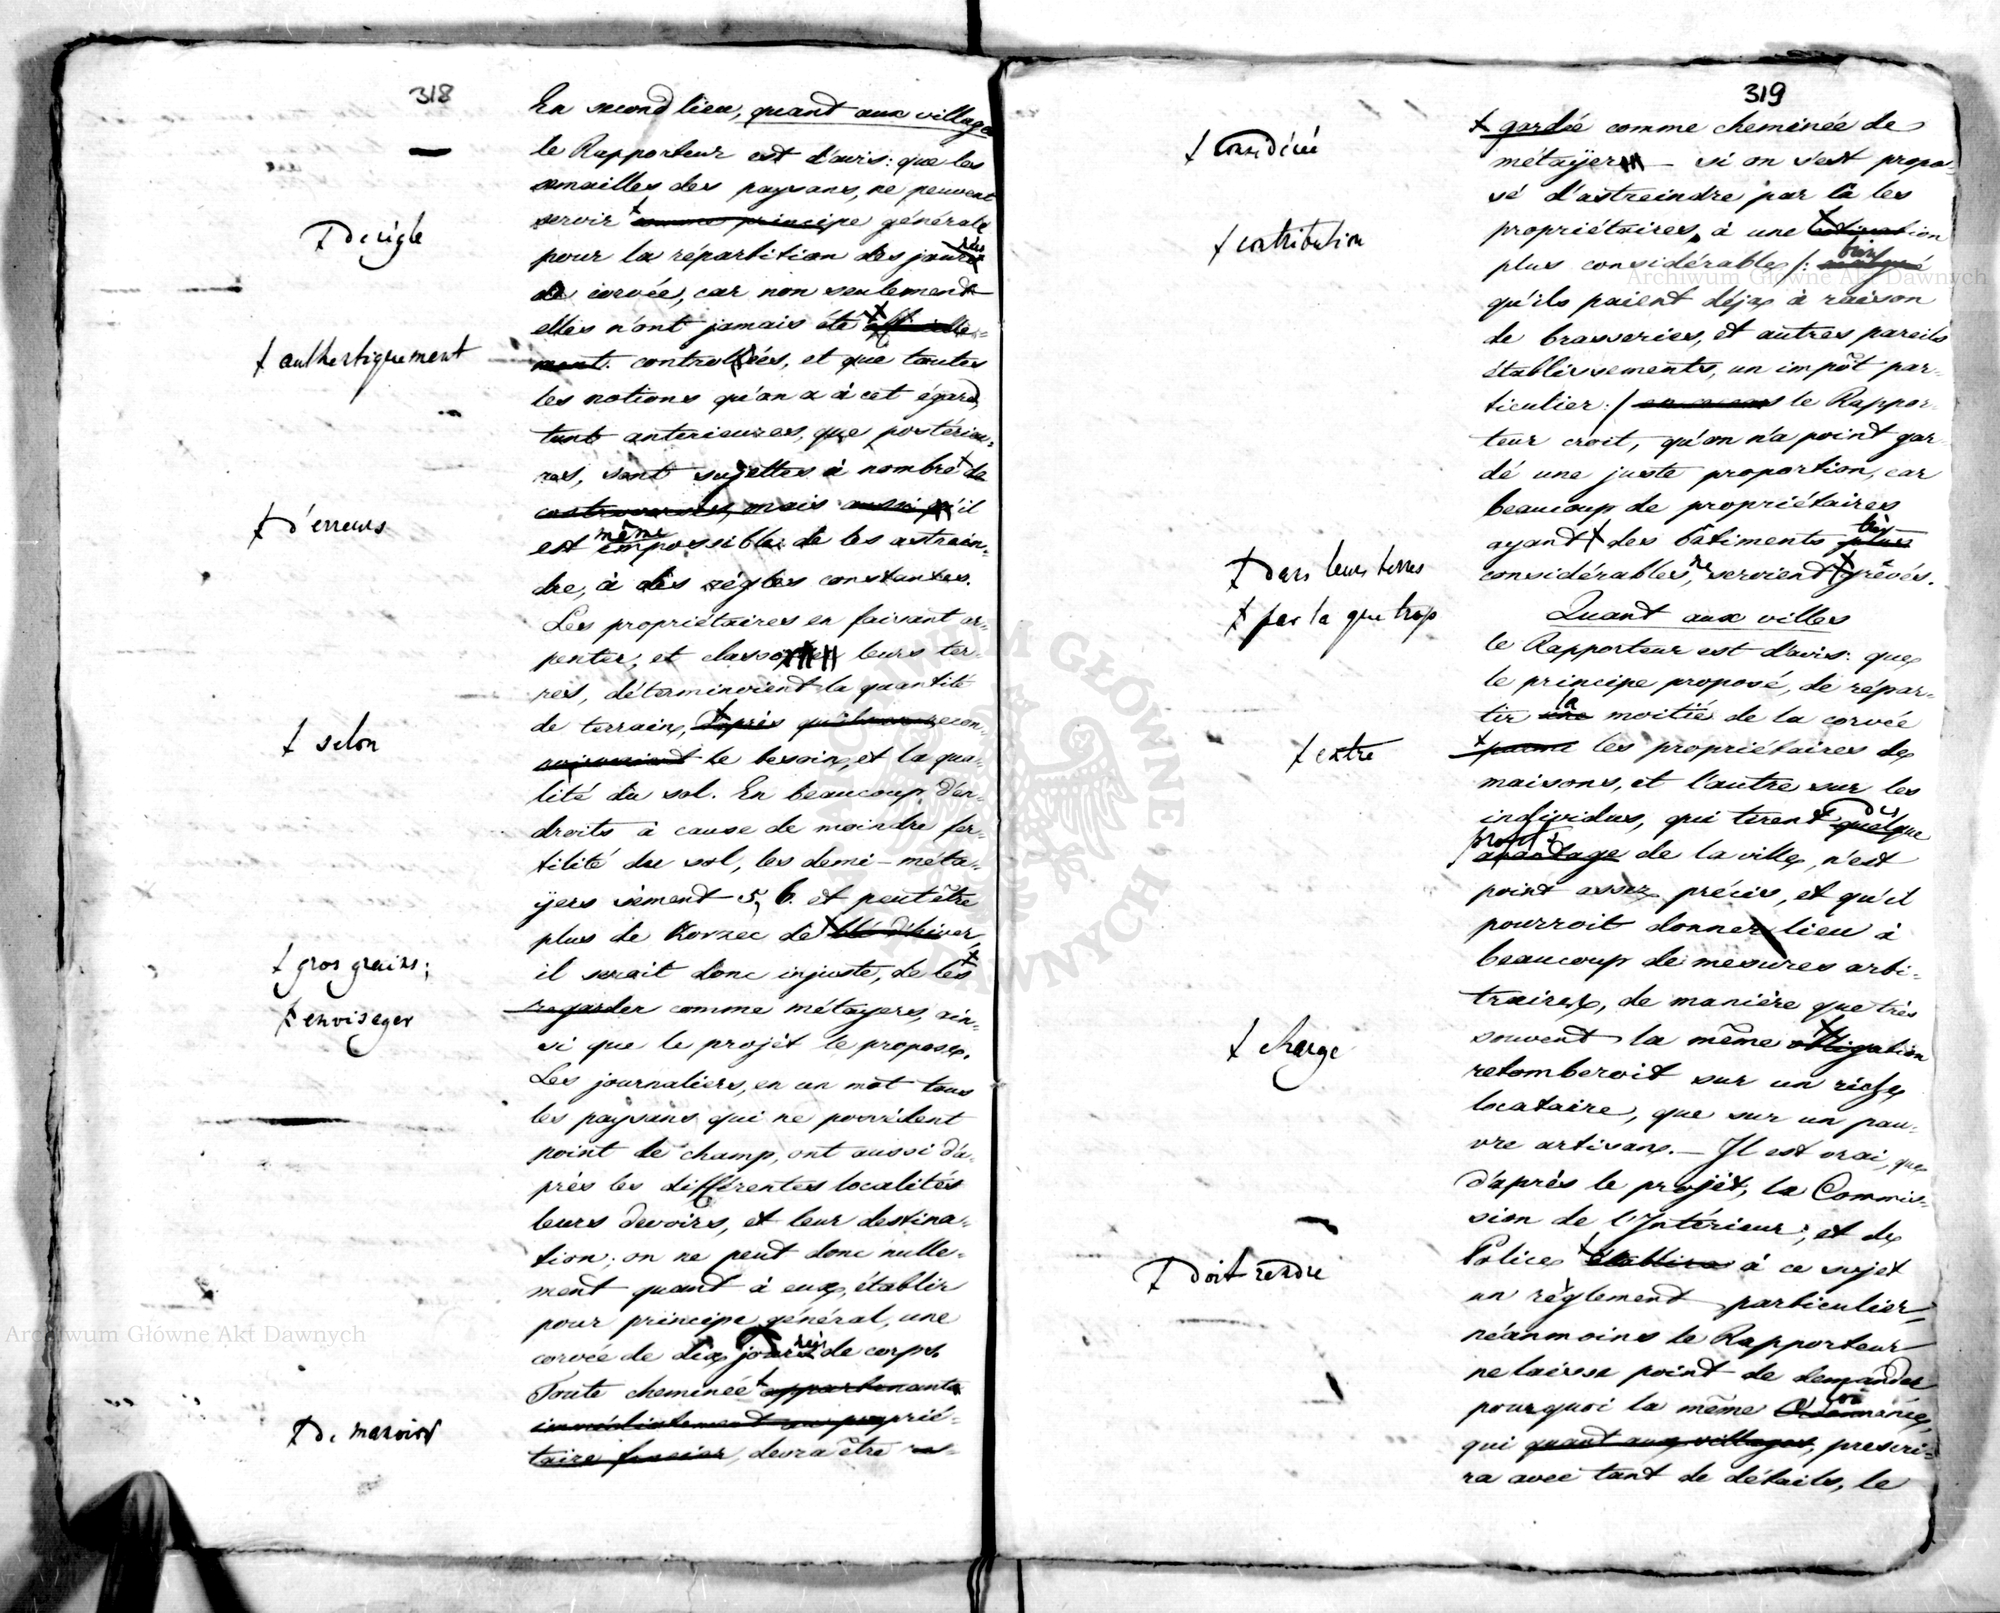 318
En second lieu, quant aux villages
le Rapporteur est d'avis: que les
semailles des paysans, ne peuvent
servir comme principe générale
+ De règle
pour la répartition des journées
de corvée, car non seulement
elles n'ont jamais été officielle-
ment controllées, et que toutes
+ authentiquement
les notions qu'on a à cet égard,
tant anterieures, que postérieu-
res, sont sujettes à nombre de
controverses, mais aussi qu'il
+ D'erreurs
est même impossible de les astrein-
dre, à des règles constantes.
Les propriétaires en faisant ar-
penter, et classer leurs ter-
res, détermineroient la quantité
de terrain, d'après
+ selon
le besoin, et la qua-
lité du sol. En beaucoup d'en-
droits à cause de moindre fer-
tilité du sol, les demi-méta-
yers sèment 5, 6. et peutêtre
plus de Korzec de blé d'hiver,
+ gros grains;
il serait donc injuste, de les
regarder comme métayers, ain-
+ envisager
si que le projèt le propose.
Les journaliers, en un mot tous
les paysans qui ne possèdent
point de champ, ont aussi d'a-
près les différentes localités
leurs devoirs, et leur destina-
tion; on ne peut donc nulle-
ment quant à eux, établir
pour principe général, une
corvée de dix journées de corps.
Toute cheminée appartenante
immédiatement au proprié-
+ De manoir
taire foncier, devra être re-
319
+ gardée comme cheminée de
+ considérée
métayer — si on s'est propo-
sé d'astreindre par là les
propriétaires, à une
+ contribution
plus considérable /: bien
qu'ils paient déja à raison
de brasseries, et autres pareils
établissements, un impôt par-
ticulier :/ en ce cas le Rappor-
teur croit, qu'on n'a point gar-
dé une juste proportion, car
beaucoup de propriétaires
ayant + des bâtiments plus très
+ Dans leurs terres
considérables, ne seroient + grévés.
+ par la que trop
Quant aux villes
le Rapporteur est d'avis: que
le principe proposé, de répar-
tir une la moitié de la corvée
+ parmi les propriétaires de
+ entre
maisons, et l'autre sur les
individus, qui tirent quelque du
avantage profit de la ville, n'est
point assez précis, et qu'il
pourroit donner lieu à
beaucoup de mesures arbi-
traires, de manière que très
souvent la même obligation
+ charge
retomberoit sur un riche
locataire, que sur un pau-
vre artisan. — Il est vrai, que
d'après le projèt, la Commis-
sion de l'Intérieur, et de
Police établira à ce sujet
+ Doit rendre
un règlement particulier,
néanmoins le Rapporteur
ne laisse point de demander
pourquoi la même Ordonnance, loi
qui quant aux villages, prescri-
ra avec tant de détails, le
Archiwum Główne Akt Dawnych
Archiwum Główne Akt Dawnych
ARCHIWUM GŁÓWNE AKT DAWNYCH